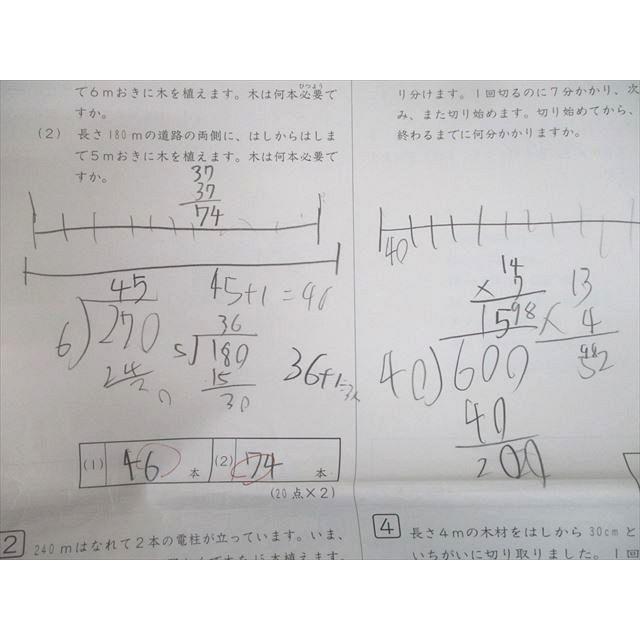 で６ｍおきに木を植えます。木は何本必要で
ひつよう
すか。
(2) 長さ180ｍの道路の両側に、はしからはしま
で５ｍおきに木を植えます。木は何本必要で
すか。
37
37
74
45
6)270
24
45+1=46
36
5)180
15
30
36+1=
(1) 46 本 (2) 74 本
(20点×2)
2 240ｍはなれて２本の電柱が立っています。いま、
り分けます。１回切るのに７分かかり、次
み、また切り始めます。切り始めてから、
終わるまでに何分かかりますか。
40
14
×7
98
13
×4
52
15
40)600
40
200
4 長さ４ｍの木材をはしから30cmと
いちがいに切り取りました。１回